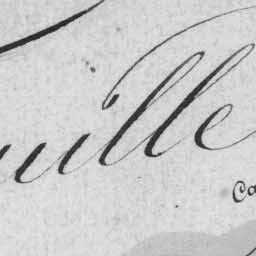 uille
Ca